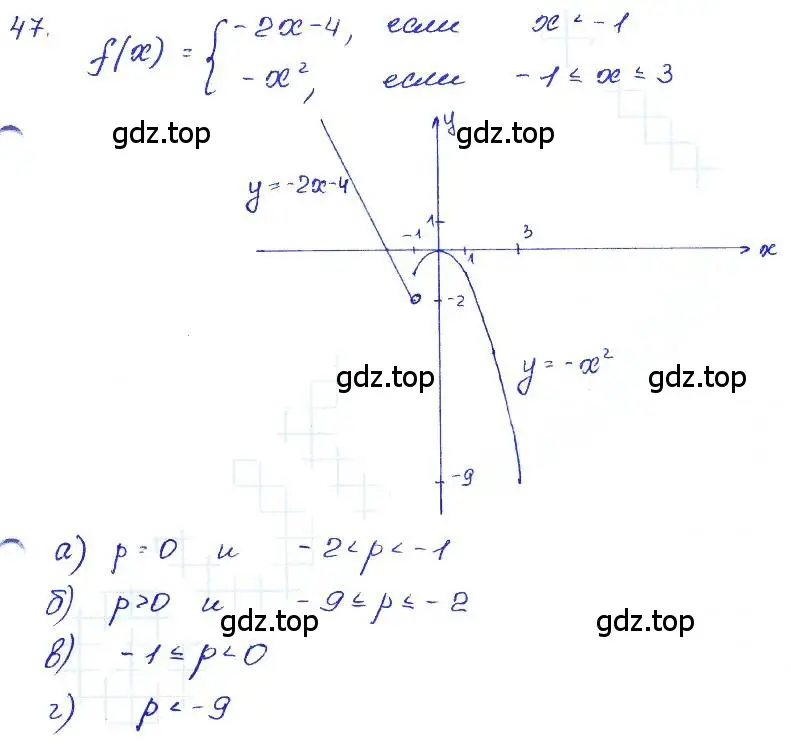 47.
f(x) = { -2x-4, если x < -1
-x², если -1 ≤ x ≤ 3
gdz.top gdz.top
y
y = -2x-4
1
-1 3
1 x
-2
y = -x²
gdz.top gdz.top
-9
а) p = 0 и -2 < p < -1
б) p > 0 и -9 ≤ p ≤ -2
gdz.top gdz.top
в) -1 ≤ p < 0
г) p < -9